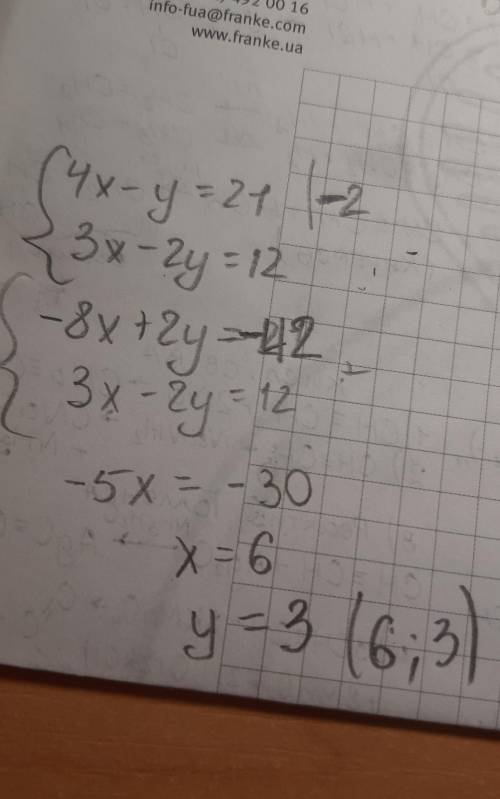 492 00 16
info-fua@franke.com
www.franke.ua
4x - y = 21 | -2
3x - 2y = 12
-8x + 2y = -42
3x - 2y = 12
-5x = -30
x = 6
y = 3 (6; 3)